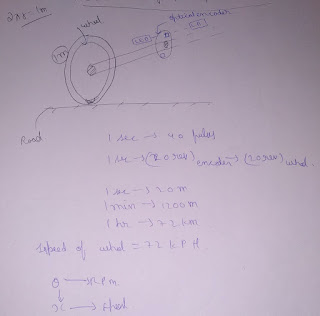 2πr = 1m
wheel
optical encoder
1m
LED
Road
1 sec → 40 pulses
1 sec → (20 rev) encoder → (20 rev) wheel.
1 sec → 20 m
1 min → 1200 m
1 hr → 72 km
Speed of wheel = 72 KPH.
θ → RPM
↓
x → Speed